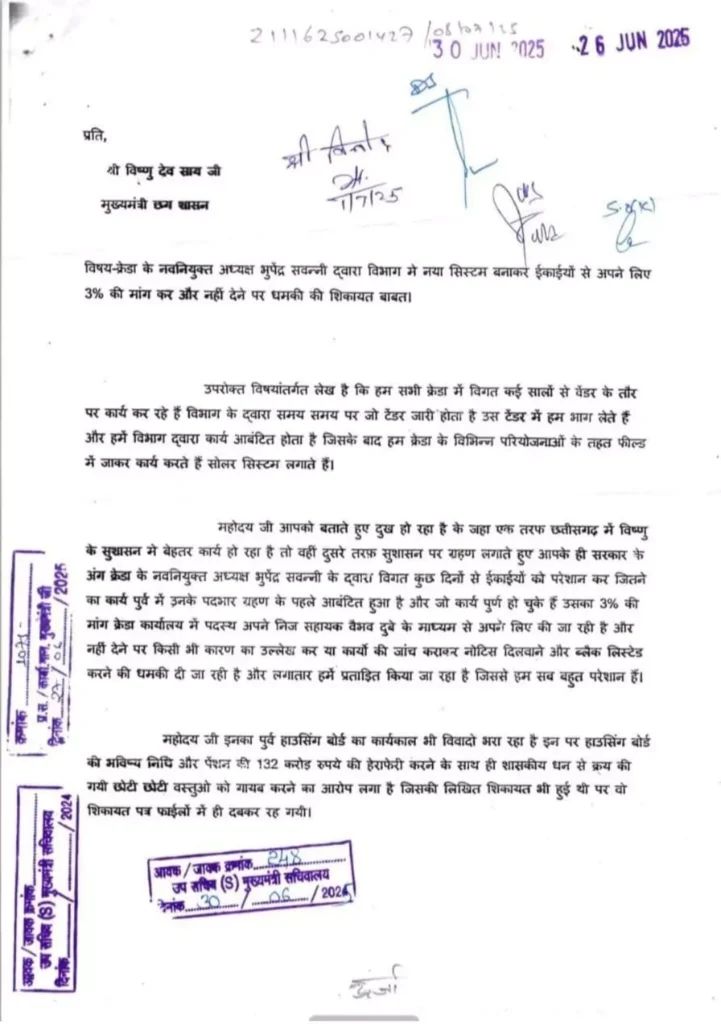 2111625001427/08/07/25
30 JUN 2025
26 JUN 2025
प्रति,
श्री विष्णु देव साय जी
मुख्यमंत्री छग शासन
श्री विनोद
1/7/25
विषय-क्रेडा के नवनियुक्त अध्यक्ष भुपेंद्र सवन्नी द्वारा विभाग मे नया सिस्टम बनाकर ईकाईयों से अपने लिए
3% की मांग कर और नहीं देने पर धमकी की शिकायत बाबत।
उपरोक्त विषयांतर्गत लेख है कि हम सभी क्रेडा में विगत कई सालों से वेंडर के तौर
पर कार्य कर रहे हैं विभाग के द्वारा समय समय पर जो टेंडर जारी होता है उस टेंडर में हम भाग लेते हैं
और हमें विभाग द्वारा कार्य आबंटित होता है जिसके बाद हम क्रेडा के विभिन्न परियोजनाओं के तहत फील्ड
में जाकर कार्य करते हैं सोलर सिस्टम लगाते हैं।
महोदय जी आपको बताते हुए दुख हो रहा है के जहा एक तरफ छतीसगढ़ में विष्णु
के सुशासन मे बेहतर कार्य हो रहा है तो वहीं दुसरे तरफ़ सुशासन पर ग्रहण लगाते हुए आपके ही सरकार के
अंग क्रेडा के नवनियुक्त अध्यक्ष भुपेंद्र सवन्नी के द्वारा विगत कुछ दिनों से ईकाईयों को परेशान कर जितने
का कार्य पुर्व में उनके पदभार ग्रहण के पहले आबंटित हुआ है और जो कार्य पुर्ण हो चुके हैं उसका 3% की
मांग क्रेडा कार्यालय में पदस्थ अपने निज सहायक वैभव दुबे के माध्यम से अपने लिए की जा रही है और
नहीं देने पर किसी भी कारण का उल्लेख कर या कार्यो की जांच कराकर नोटिस दिलवाने और ब्लैक लिस्टेड
करने की धमकी दी जा रही है और लगातार हमें प्रताड़ित किया जा रहा है जिससे हम सब बहुत परेशान हैं।
महोदय जी इनका पुर्व हाउसिंग बोर्ड का कार्यकाल भी विवादो भरा रहा है इन पर हाउसिंग बोर्ड
की भविष्य निधि और पेंशन की 132 करोड़ रुपये की हेराफेरी करने के साथ ही शासकीय धन से क्रय की
गयी छोटी छोटी वस्तुओ को गायब करने का आरोप लगा है जिसकी लिखित शिकायत भी हुई थी पर वो
शिकायत पत्र फाईलों में ही दबकर रह गयी।
क्रमांक 1071
दिनांक 27/06/2025
आवक / जावक क्रमांक
उप सचिव (S) मुख्यमंत्री सचिवालय
दिनांक / /2024
आवक / जावक क्रमांक 248
उप सचिव (S) मुख्यमंत्री सचिवालय
दिनांक 30 / 06 / 2025
ऊर्जा